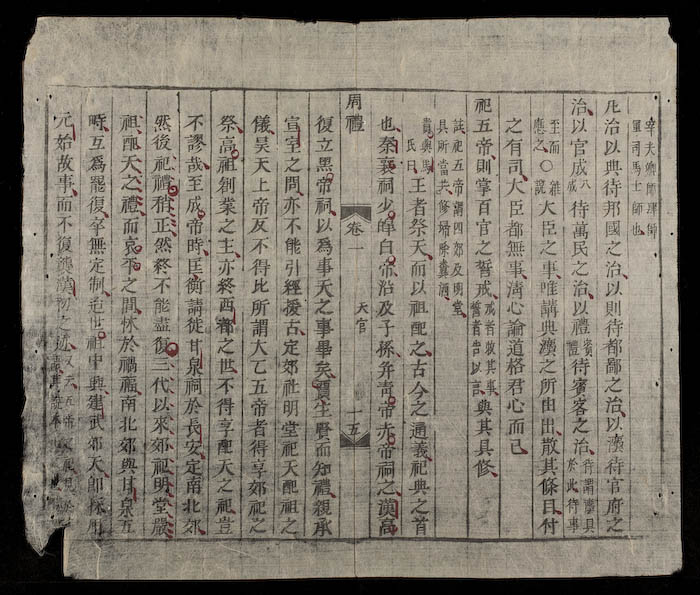 凡治以典待邦國之治以則待都鄙之治以灋待官府之
治以官成八成待萬民之治以禮賓禮待賓客之治待謂豫具於此待事
至而應之〇雜說大臣之事唯講典灋之所由出散其條目付
之有司大臣都無事清心論道格君心而已
祀五帝則掌百官之誓戒戒者敕其事誓者告以言與其具修
註祀五帝謂四郊及明堂
具所當共修掃除糞洒
貴與馬氏曰王者祭天而以祖配之古今之通義祀典之首
也秦襄祠少皥白帝沿及子孫并靑帝赤帝祠之漢高
周禮 卷一 天官 一五
復立黑帝祠以爲事天之事畢矣賈生賢而知禮親承
宣室之問亦不能引經援古定郊社明堂祀天配祖之
儀昊天上帝反不得比所謂大乙五帝者得享郊祀之
祭高祖創業之主亦終西都之世不得享配天之祀豈
不謬哉至成帝時匡衡請徙甘泉祠於長安定南北郊
然後祀禮稍正然終不能盡復三代以來郊祀明堂嚴
祖配天之禮而哀平之間怵於禍福南北郊與甘泉五
畤互爲罷復卒無定制迨世祖中興建武郊天卽採用
元始故事而不復襲漢初之跡